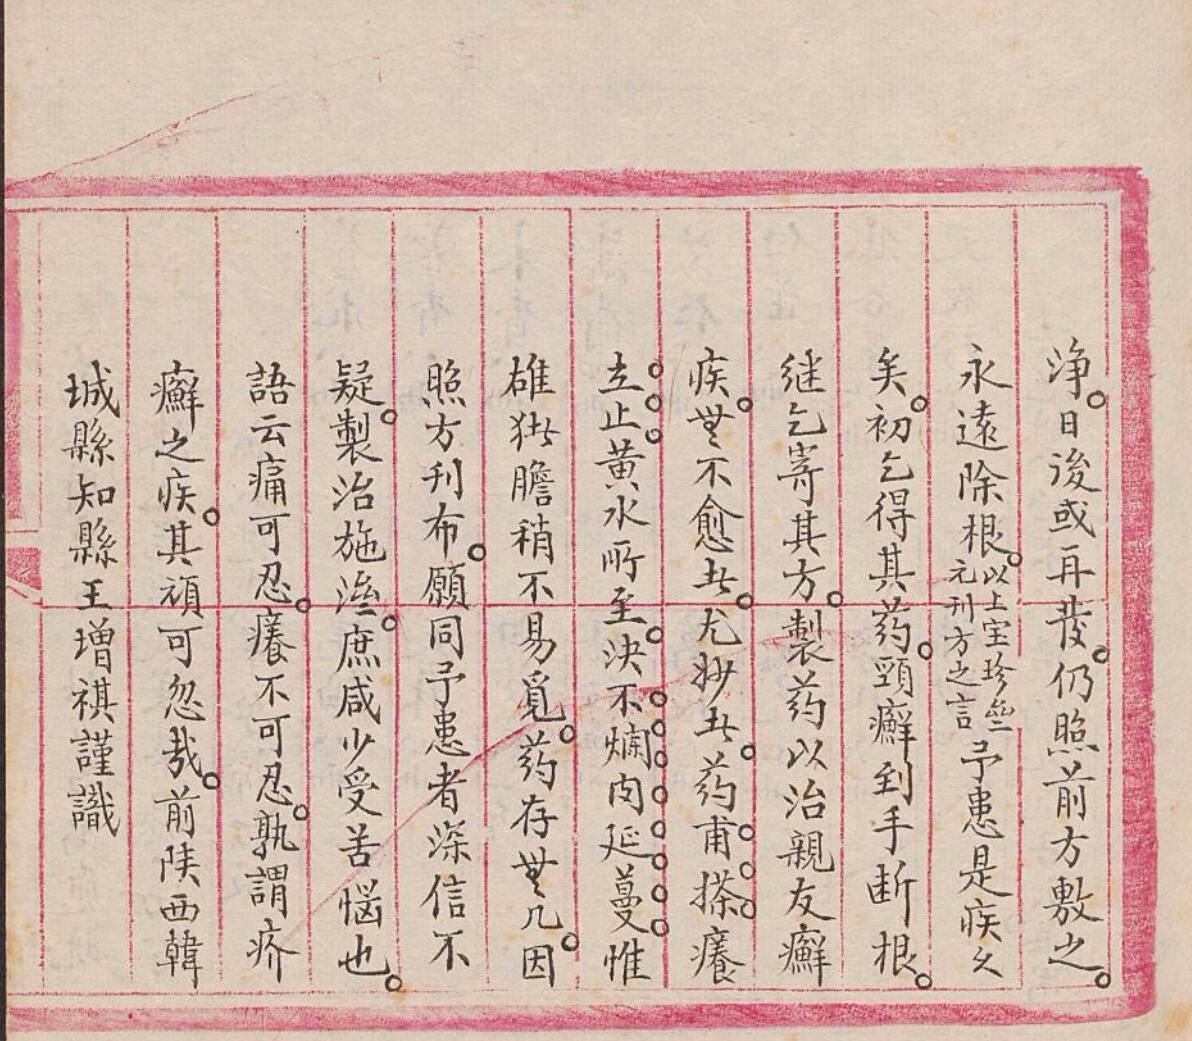 淨。日後或再發。仍照前方敷之。
永遠除根。以上宝珍元刋方之言予患是疾久
矣。初乞得其药。頸癬到手断根。
继乞寄其方。製药以治親友癬
疾。無不愈者。尤妙者。药甫搽癢
立止。黄水所至。決不爛肉延蔓。惟
雄猪膽稍不易覓。药存無几。因
照方刋布。願同予患者深信不
疑。製治施济。庶咸少受苦惱也。
語云痛可忍。癢不可忍。孰謂疥
癬之疾。其頑可忽哉。前陕西韓
城縣知縣王增祺謹識